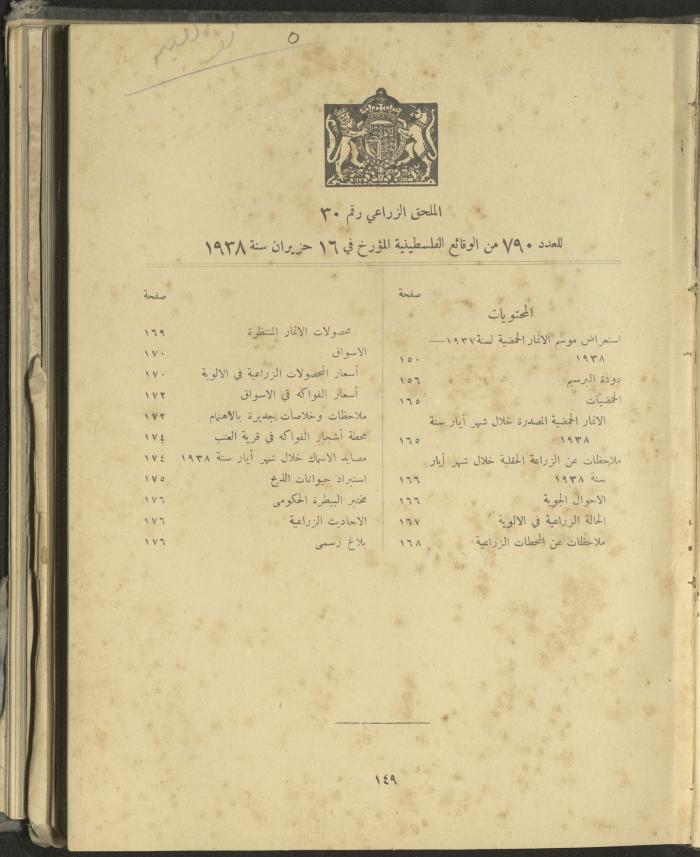 الملحق الزراعي رقم ٣٠
للعدد ٧٩٠ من الوقائع الفلسطينية المؤرخ في ١٦ حزيران سنة ١٩٣٨
صفحة
المحتويات
استعراض موسم الاثمار الحمضية لسنة ١٩٣٧—
١٩٣٨ ١٥٠
دودة البرسيم ١٥٦
الحمضيات ١٦٥
الاثمار الحمضية المصدرة خلال شهر أيار سنة
١٩٣٨ ١٦٥
ملاحظات عن الزراعة الحقلية خلال شهر أيار
سنة ١٩٣٨ ١٦٦
الاحوال الجوية ١٦٦
الحالة الزراعية في الالوية ١٦٧
ملاحظات عن المحطات الزراعية ١٦٨
صفحة
محصولات الاثمار المنتظرة ١٦٩
الاسواق ١٧٠
أسعار المحصولات الزراعية في الالوية ١٧٠
أسعار الفواكه في الاسواق ١٧٢
ملاحظات وخلاصات جديرة بالاهتمام ١٧٢
محطة أشجار الفواكه في قرية العنب ١٧٤
مصايد الاسماك خلال شهر أيار سنة ١٩٣٨ ١٧٤
استيراد حيوانات الذبح ١٧٥
مختبر البيطرة الحكومي ١٧٦
الاحاديث الزراعية ١٧٦
بلاغ رسمي ١٧٦
١٤٩